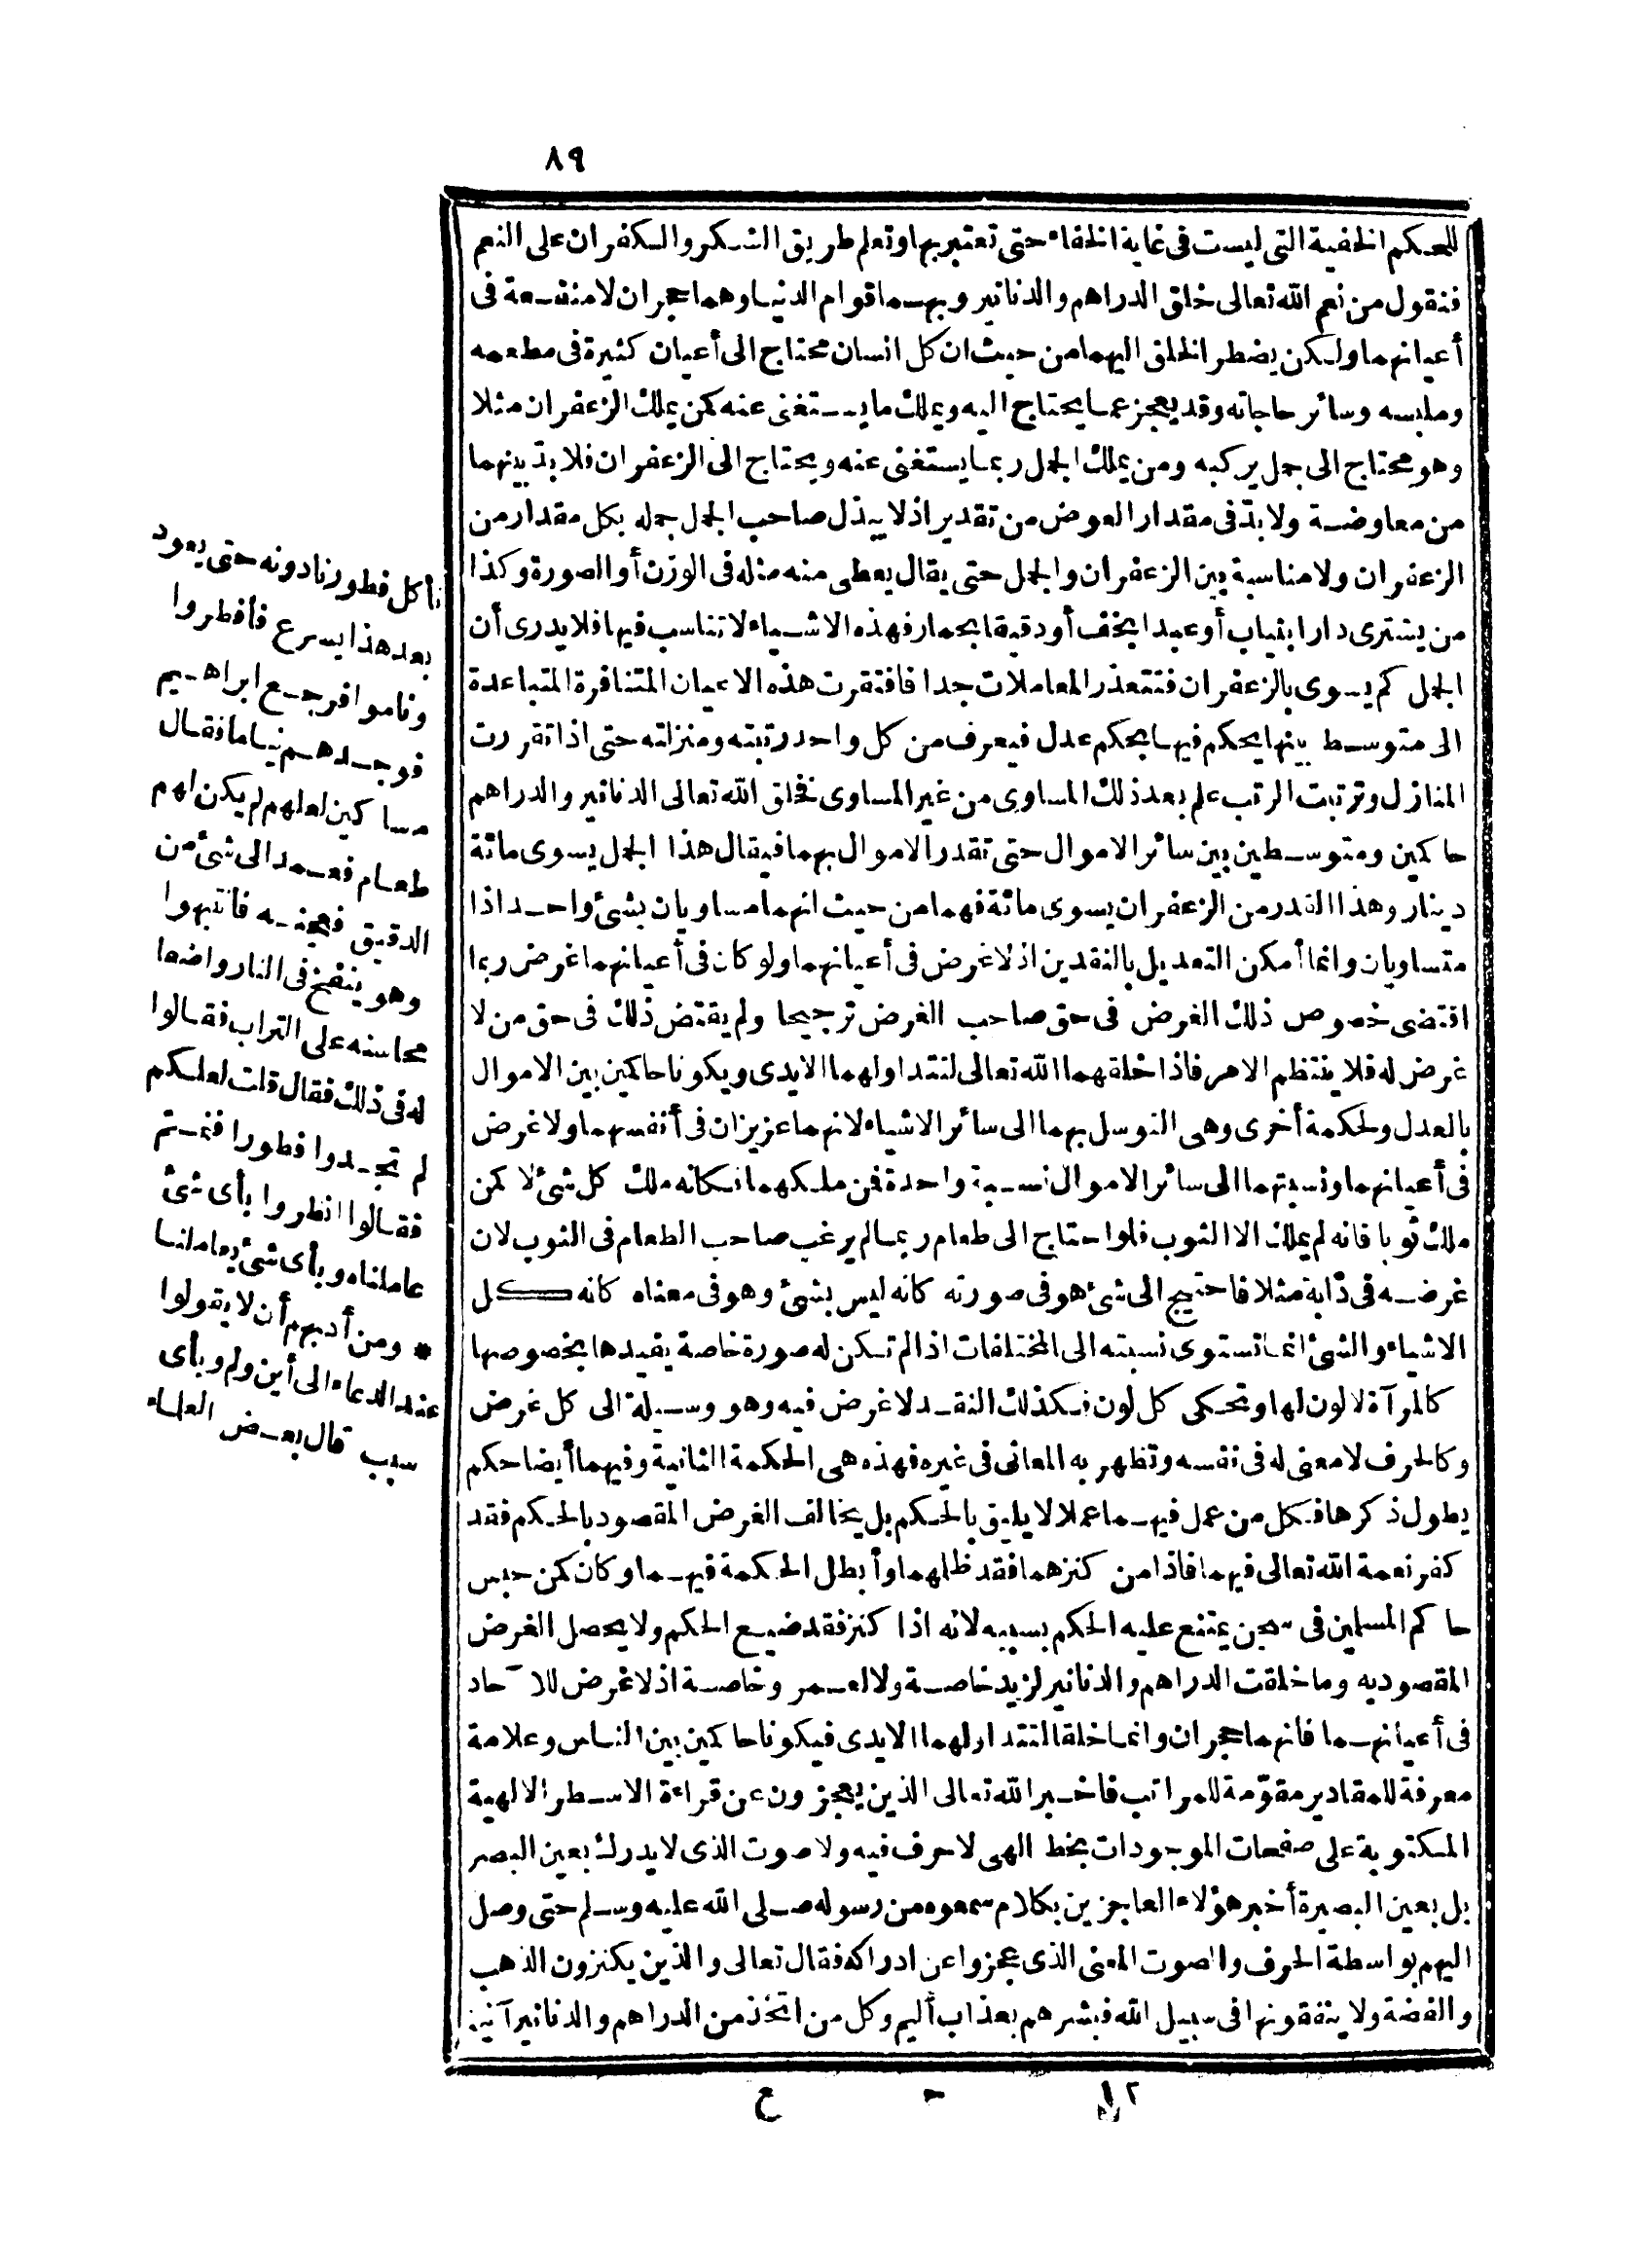 ٨٩
للحكم الخفية التى ليست فى غاية الخفاء حتى تعتبر بها وتعلم طريق الشكر والكفران على النعم
فنقول من نعم الله تعالى خلق الدراهم والدنانير وبهما قوام الدنيا وهما حجران لا منفعة فى
أعيانهما ولكن يضطر الخلق اليهما من حيث ان كل انسان محتاج الى أعيان كثيرة فى مطعمه
وملبسه وسائر حاجاته وقد يعجز عما يحتاج اليه ويملك ما يستغنى عنه كمن يملك الزعفران مثلا
وهو محتاج الى جمل يركبه ومن يملك الجمل ربما يستغنى عنه ويحتاج الى الزعفران فلا بد بينهما
من معاوضة ولا بد فى مقدار العوض من تقدير اذ لا يبذل صاحب الجمل جمله بكل مقدار من
الزعفران ولا مناسبة بين الزعفران والجمل حتى يقال يعطى منه مثله فى الوزن أو الصورة وكذا
من يشترى دارا بثياب أو عبدا بخف أو دقيقا بحمار فهذه الاشياء لا تناسب فيها فلا يدرى أن
الجمل كم يسوى بالزعفران فتتعذر المعاملات جدا فافتقرت هذه الاعيان المتنافرة المتباعدة
الى متوسط بينها يحكم فيها بحكم عدل فيعرف من كل واحد رتبته ومنزلته حتى اذا تقررت
المنازل وترتبت الرتب علم بعد ذلك المساوى من غير المساوى فخلق الله تعالى الدنانير والدراهم
حاكمين ومتوسطين بين سائر الاموال حتى تقدر الاموال بهما فيقال هذا الجمل يسوى مائة
دينار وهذا القدر من الزعفران يسوى مائة فهما من حيث انهما مساويان بشئ واحد اذا
متساويان وانما أمكن التعديل بالنقدين اذ لا غرض فى أعيانهما ولو كان فى أعيانهما غرض ربما
اقتضى خصوص ذلك الغرض فى حق صاحب الغرض ترجيحا ولم يقتض ذلك فى حق من لا
غرض له فلا ينتظم الامر فاذا خلقهما الله تعالى لتتداولهما الايدى ويكونا حاكمين بين الاموال
بالعدل ولحكمة أخرى وهى التوسل بهما الى سائر الاشياء لانهما عزيزان فى أنفسهما ولا غرض
فى أعيانهما ونسبتهما الى سائر الاموال نسبة واحدة فمن ملكهما فكانه ملك كل شئ لا كمن
ملك ثوبا فانه لم يملك الا الثوب فلو احتاج الى طعام ربما لم يرغب صاحب الطعام فى الثوب لان
غرضه فى دابة مثلا فاحتيج الى شئ هو فى صورته كانه ليس بشئ وهو فى معناه كانه كل
الاشياء والشئ انما تستوى نسبته الى المختلفات اذا لم تكن له صورة خاصة يفيدها بخصوصها
كالمرآة لا لون لها وتحكى كل لون فكذلك النقد لا غرض فيه وهو وسيلة الى كل غرض
وكالحرف لا معنى له فى نفسه وتظهر به المعانى فى غيره فهذه هى الحكمة الثانية وفيهما أيضا حكم
يطول ذكرها فكل من عمل فيهما عملا لا يليق بالحكم بل يخالف الغرض المقصود بالحكم فقد
كفر نعمة الله تعالى فيهما فاذا من كنزهما فقد ظلمهما وأبطل الحكمة فيهما وكان كمن حبس
حاكم المسلمين فى سجن يمتنع عليه الحكم بسببه لانه اذا كنز فقد ضيع الحكم ولا يحصل الغرض
المقصود به وما خلقت الدراهم والدنانير لزيد خاصة ولا لعمر وخاصة اذ لا غرض للآحاد
فى أعيانهما فانهما حجران وانما خلقا لتتداولهما الايدى فيكونا حاكمين بين الناس وعلامة
معرفة للمقادير مقوّمة للمراتب فاخبر الله تعالى الذين يعجزون عن قراءة الاسطر الالهية
المكتوبة على صفحات الموجودات بخط الهى لا حرف فيه ولا صوت الذى لا يدرك بعين البصر
بل بعين البصيرة أخبر هؤلاء العاجزين بكلام سمعوه من رسوله صلى الله عليه وسلم حتى وصل
اليهم بواسطة الحرف والصوت المعنى الذى عجزوا عن ادراكه فقال تعالى والذين يكنزون الذهب
والفضة ولا ينفقونها فى سبيل الله فبشرهم بعذاب أليم وكل من اتخذ من الدراهم والدنانير آنية
نأكل فطورنا دونه حتى يعود
بعد هذا يسرع فأفطروا
وناموا فرجع ابراهيم
فوجدهم نياما فقال
مساكين لعلهم لم يكن لهم
طعام فعمد الى شئ من
الدقيق فعجنه فانتبهوا
وهو ينفخ فى النار واضعا
محاسنه على التراب فقالوا
له فى ذلك فقال قلت لعلكم
لم تجدوا فطورا فنمتم
فقالوا انظروا بأى شئ
عاملناه وبأى شئ يعاملنا
* ومن أدبهم أن لا يقولوا
عند الدعاء الى أين ولم وبأى
سبب قال بعض العلماء
١٢
ح